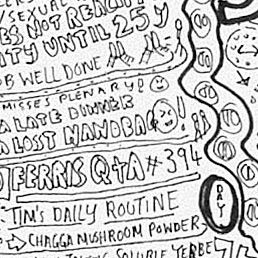 /SEXUAL
ES NOT REALI
ITY UNTIL 25 Y
OB WELL DONE
MISSES PLENARY!
A LATE DINNER
A LOST HANDBAG!
FERRIS Q+A #394
TIM'S DAILY ROUTINE
DAY
→ CHAGGA MUSHROOM POWDER
SOLUBLE YERBE